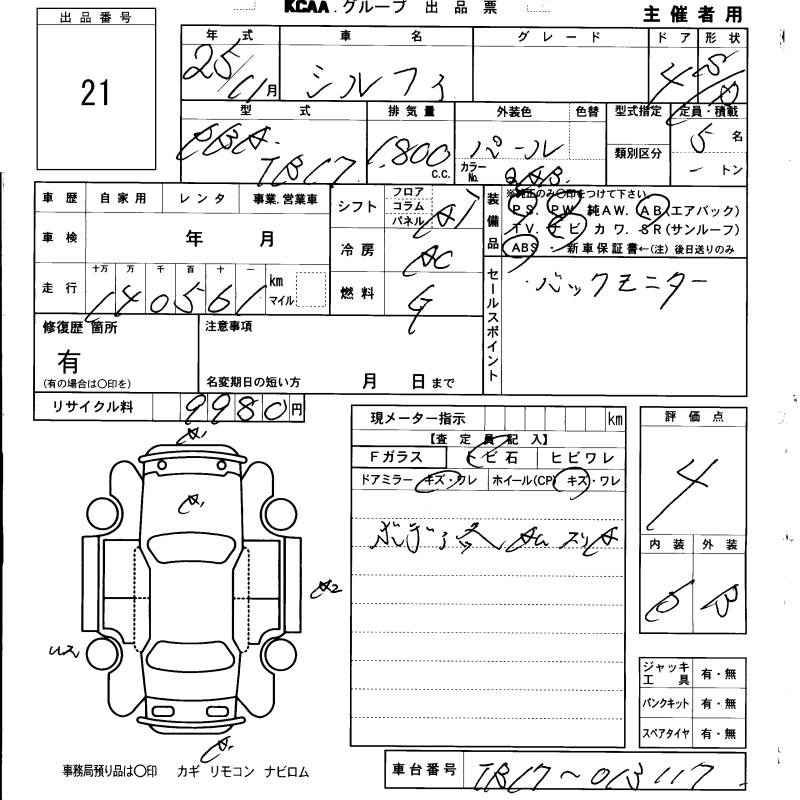 KCAA グループ 出品票
主催者用
出品番号
21
年式 車名 グレード ドア 形状
25/11月 シルフィ 4 S/D
型式 排気量 外装色 色替 型式指定 定員・積載
DBA-TB17 1,800 C.C. パール カラーNo. QAB 類別区分 5名
－トン
車歴 自家用 レンタ 事業.営業車
車検 年 月
走行 十万 万 千 百 十 一 km マイル
140561
シフト フロア コラム パネル AT
冷房 AC
燃料 G
装備品 ※純正のみ〇印をつけて下さい。
PS. PW. 純AW. AB(エアバック)
TV. ナビ カワ. SR(サンルーフ)
ABS . 新車保証書←(注) 後日送りのみ
セールスポイント
・バックモニター
修復歴 箇所
有
(有の場合は〇印を)
注意事項
名変期日の短い方 月 日まで
リサイクル料 9980円
現メーター指示 km
【査定員記入】
Fガラス トビ石 ヒビワレ
ドアミラー キズ・ワレ ホイール(CP) キズ・ワレ
評価点
4
内装 外装
B
A1
A1
A2
A1
ジャッキ工具 有・無
パンクキット 有・無
スペアタイヤ 有・無
事務局預り品は〇印 カギ リモコン ナビロム
車台番号 TB17～013117